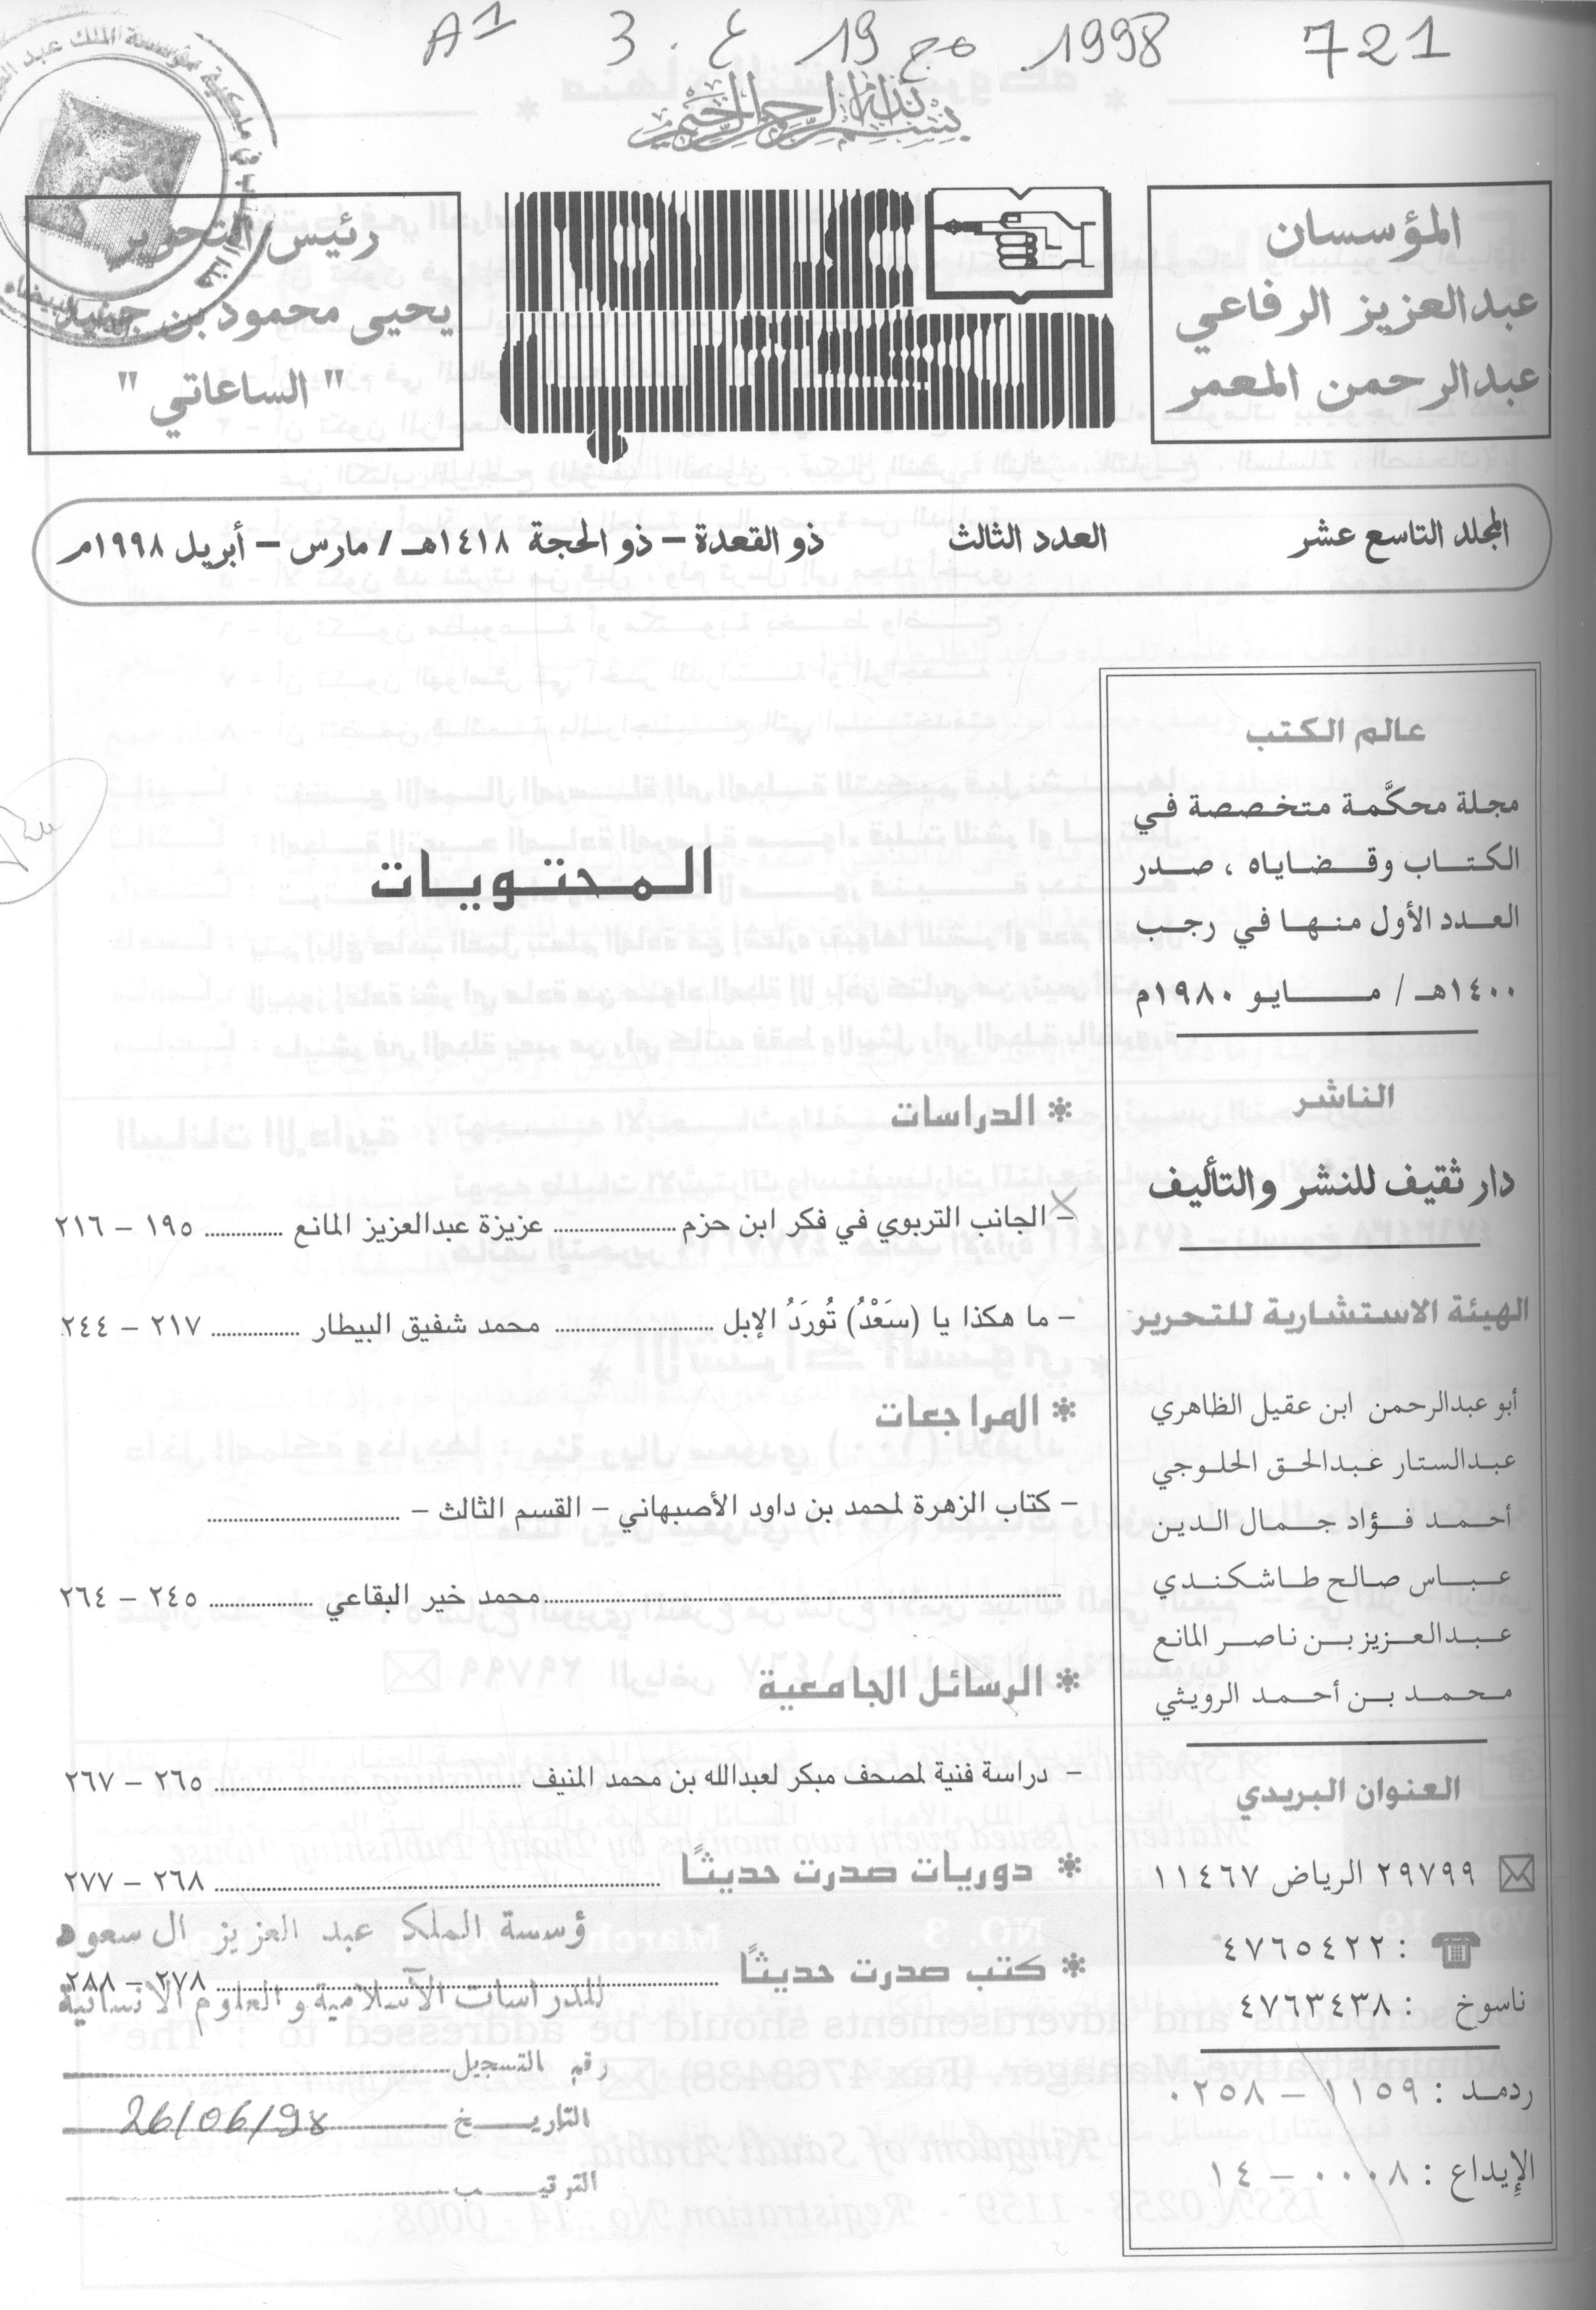 A1 3 .ع 19 مج 1998 721
بسم الله الرحمن الرحيم
المؤسسان
عبدالعزيز الرفاعي
عبدالرحمن المعمر
رئيس التحرير
يحيى محمود بن جنيد
" الساعاتي "
المجلد التاسع عشر العدد الثالث ذو القعدة – ذو الحجة ١٤١٨هـ / مارس – أبريل ١٩٩٨م
عالم الكتب
مجلة محكَّمة متخصصة في
الكتاب وقضاياه ، صدر
العدد الأول منها في رجب
١٤٠٠هـ / مايو ١٩٨٠م
الناشر
دار ثقيف للنشر والتأليف
الهيئة الاستشارية للتحرير
أبو عبدالرحمن ابن عقيل الظاهري
عبدالستار عبدالحق الحلوجي
أحمد فؤاد جمال الدين
عباس صالح طاشكندي
عبدالعزيز بن ناصر المانع
محمد بن أحمد الرويثي
العنوان البريدي
٢٩٧٩٩ الرياض ١١٤٦٧
: ٤٧٦٥٤٢٢
ناسوخ : ٤٧٦٣٤٣٨
ردمد : ١١٥٩ – ٠٢٥٨
الإيداع : ٠٠٠٨ – ١٤
المحتويات
* الدراسات
– الجانب التربوي في فكر ابن حزم ........ عزيزة عبدالعزيز المانع ........ ١٩٥ – ٢١٦
– ما هكذا يا (سَعْدُ) تُورَدُ الإبل ........ محمد شفيق البيطار ........ ٢١٧ – ٢٤٤
* المراجعات
– كتاب الزهرة لمحمد بن داود الأصبهاني – القسم الثالث – ........
........ محمد خير البقاعي ........ ٢٤٥ – ٢٦٤
* الرسائل الجامعية
– دراسة فنية لمصحف مبكر لعبدالله بن محمد المنيف ........ ٢٦٥ – ٢٦٧
* دوريات صدرت حديثاً ........ ٢٦٨ – ٢٧٧
* كتب صدرت حديثاً ........ ٢٧٨ – ٢٨٨
ؤسسة الملك عبد العزيز ال سعود
للدراسات الآسلامية و العلوم الانسانية
رقم التسجيل
التاريخ 26/06/98
الترتيب